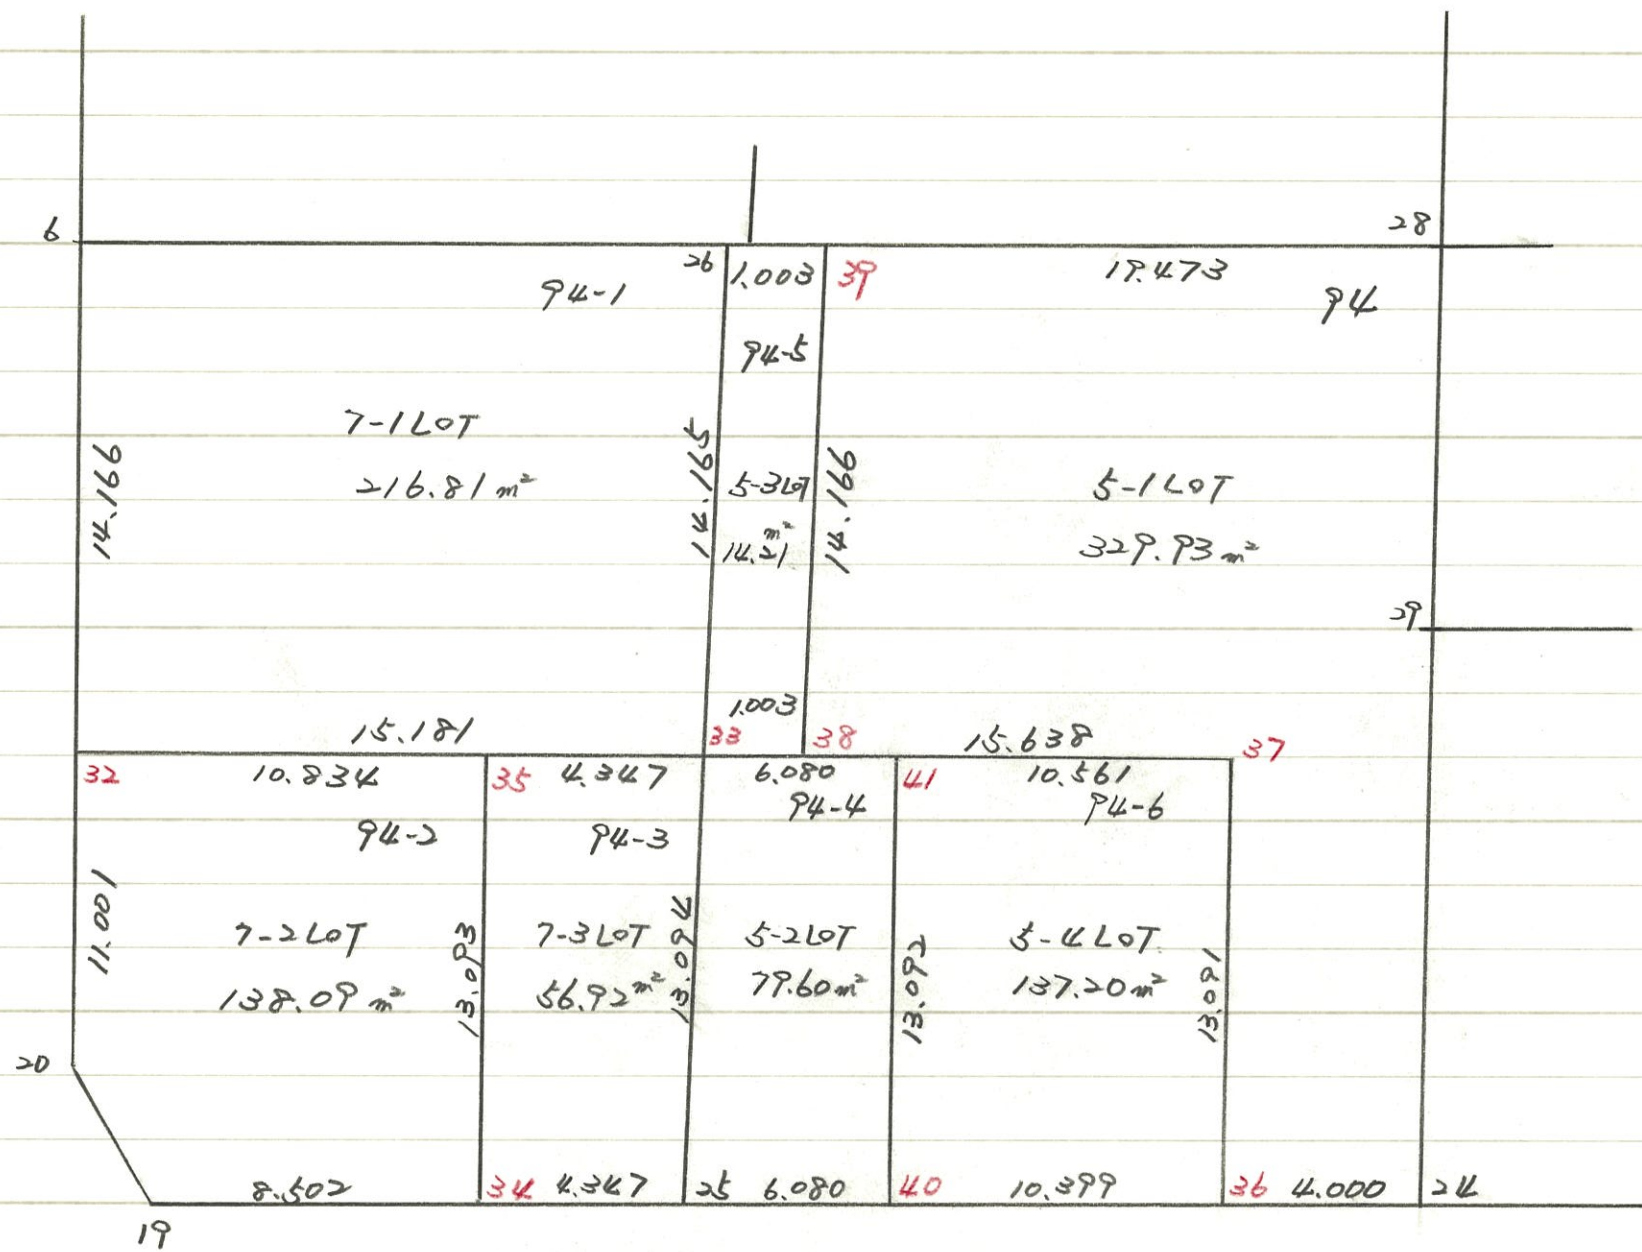 6
28
26
1.003
39
19.473
94-1
94
94-5
7-1LOT
216.81 m²
14.166
14.165
5-3LOT
14.21 m²
14.166
5-1LOT
329.93 m²
29
1.003
15.181
33
38
15.638
37
32
10.834
35
4.347
6.080
41
10.561
94-2
94-3
94-4
94-6
11.001
7-2LOT
138.09 m²
13.093
7-3LOT
56.92 m²
13.094
5-2LOT
79.60 m²
13.092
5-4LOT
137.20 m²
13.091
20
8.502
34
4.347
25
6.080
40
10.399
36
4.000
24
19